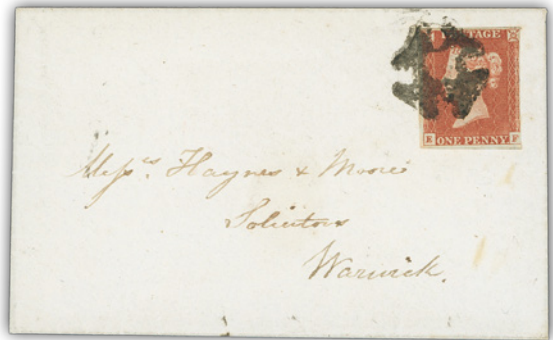 POSTAGE
E F
ONE PENNY
Messrs. Haynes & Moore
Solicitors
Warwick.